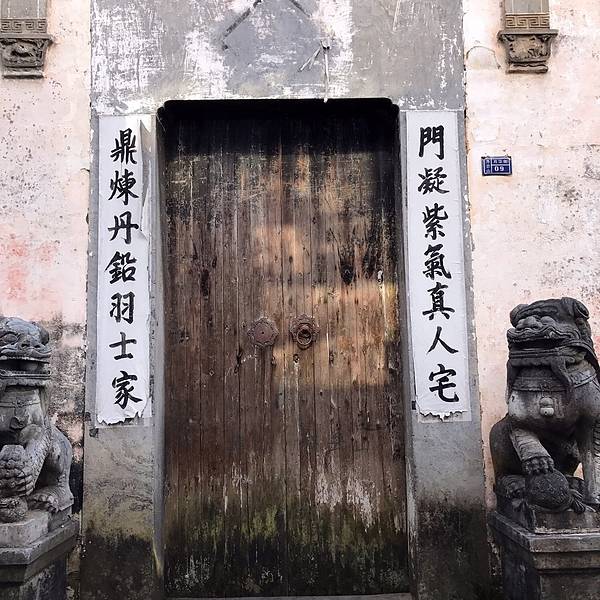 門凝紫氣真人宅
鼎煉丹鉛羽士家
09